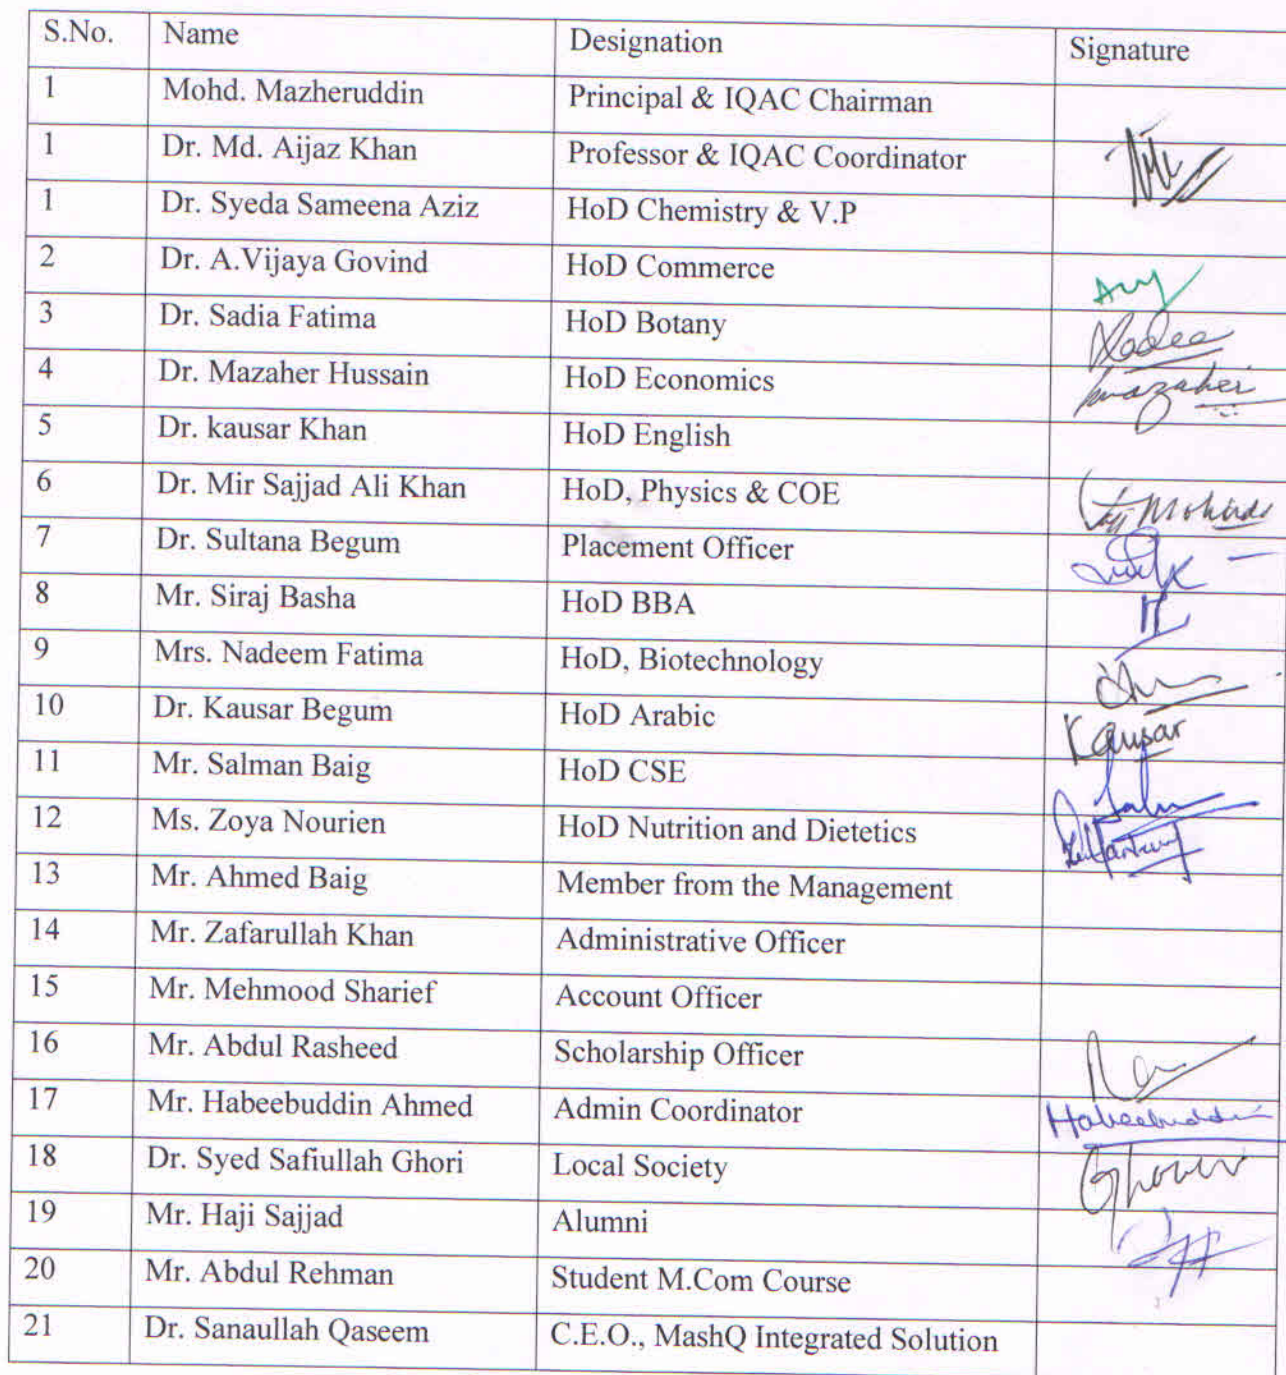 S.No. Name Designation Signature
1 Mohd. Mazheruddin Principal & IQAC Chairman
1 Dr. Md. Aijaz Khan Professor & IQAC Coordinator
1 Dr. Syeda Sameena Aziz HoD Chemistry & V.P
2 Dr. A.Vijaya Govind HoD Commerce
3 Dr. Sadia Fatima HoD Botany
4 Dr. Mazaher Hussain HoD Economics mazaher
5 Dr. kausar Khan HoD English
6 Dr. Mir Sajjad Ali Khan HoD, Physics & COE
7 Dr. Sultana Begum Placement Officer
8 Mr. Siraj Basha HoD BBA
9 Mrs. Nadeem Fatima HoD, Biotechnology
10 Dr. Kausar Begum HoD Arabic Kausar
11 Mr. Salman Baig HoD CSE
12 Ms. Zoya Nourien HoD Nutrition and Dietetics
13 Mr. Ahmed Baig Member from the Management
14 Mr. Zafarullah Khan Administrative Officer
15 Mr. Mehmood Sharief Account Officer
16 Mr. Abdul Rasheed Scholarship Officer
17 Mr. Habeebuddin Ahmed Admin Coordinator Habeebuddin
18 Dr. Syed Safiullah Ghori Local Society
19 Mr. Haji Sajjad Alumni
20 Mr. Abdul Rehman Student M.Com Course
21 Dr. Sanaullah Qaseem C.E.O., MashQ Integrated Solution